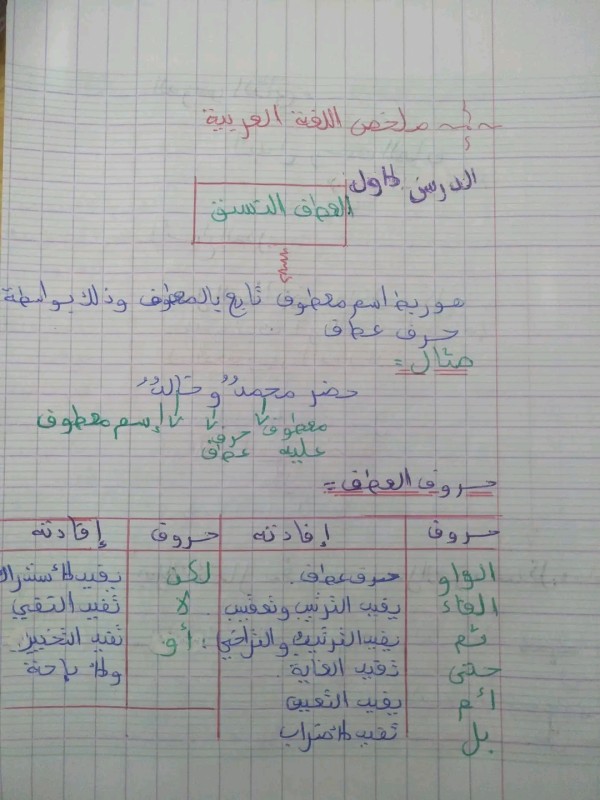 ملخص اللغة العربية
الدرس الاول
العطف النسق
هو ربط اسم معطوف تابع بالمعطوف وذلك بواسطة
حرف عطف .
مثال =
حضر محمدٌ وخالدٌ
معطوف عليه
حرف عطف
إسم معطوف
حروف العطف =
حروف إفادته حروف إفادته
الواو حرف عطف . لكن يفيد الأستدراك
الفاء يفيد الترتيب وتعقيب لا تفيد النفي
ثم يفيد الترتيب والتراخي أو تفيد التخيير
حتى تفيد الغاية . والأباحة
أم يفيد التعيين
بل تفيد الاضراب